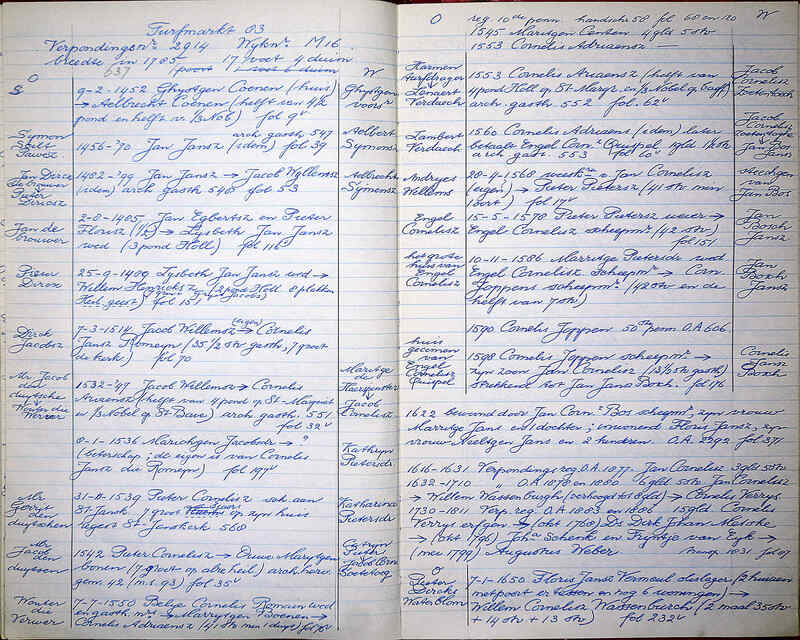 Turfmarkt 03
Verpondingnr. 2914 Wyknr. M16
breedte in 1785 17 voet 4 duim
637
O
W
S
9-2-1452 Ghystgen Coenen (huis)
→ Aelbrecht Coenen (helft van 4
pond en helft v. 1/3 Nob) fol 9v
Ghystgen
voorsz
Symon
arch. gasth. 547
1456-'70 Jan Jansz (idem) fol 39
Aelbert
Symonsz
Jan Dirck
de brouwer
Dircxsz
1482-'99 Jan Jansz → Jacob Wyllemsz
(idem) arch gasth 548 fol 33
Aelbrecht
Symonsz
Jan de
brouwer
2-8-1485 Jan Egbertsz en Pieter
Florisz → Lysbeth Jan Jansz
wed (3 pond Holl) fol 116
Dirox
25-9-1489 Lysbeth Jan Jansz wed →
Willem Henricksz (3 pond Holl 8 pletten
Heil. geest) fol 157
Dirck
Jacobsz
7-3-1514 Jacob Willemsz → Cornelis
(eigen)
Jansz Romeyn (35 1/2 str gasth, 7 groot
de kerk) fol 70
Mr. Jacob
den
duytsche
Wouter die
Verwer
1532-'47 Jacob Willemsz → Cornelis
Ariaensz (helft van 4 pond op St-Margriet
en 1/3 Nobel op St-Baue) arch gasth. 551
fol 32v
Marritge
de
Jacob
Cornelisz
8-1-1536 Marichgen Jacobsdr → ?
(beterschap; de eigen is van Cornelis
Jansz die Romeyn) fol 197v
Kathryn
Pietersdr
Mr.
Goort
den
duytschen
31-8-1539 Pieter Cornelisz sch. aan
St-Jansk 7 groot op zyn huis
tegen St-Janskerk 568
Katharina
Pietersdr
Mr
Jacob
den
duytsen
1542 Pieter Cornelisz → Ouwe Marytgen
Conen (7 groot op alre heil) arch. herv.
gem. 42 (m.s. 93) fol 35v
Catryn
Pieter
Jacob Corn
Wouter
die
Verwer
7-7-1550 Belye Cornelis Romain wed
en gasth. mrs → Marrytgen Coenen →
Cornelis Adriaensz (41 str min 1 duyt) fol 76v
O
reg 10de penn. handsch 58 fol 60 en 20
W
1545 Maritgen Centen 4 gld 5 str
1553 Cornelis Adriaensz
Harmen
Turfdrager
Lenaert
Verdaech
1553 Cornelis Ariaensz (helft van
4 pond Holl op St-Margr. en 1/3 Nobel op
arch. gasth. 552 fol. 62v
Jacob
Cornelisz
Lambert
Verdaech
1560 Cornelis Adriaens (idem) later
betaalt Engel Corn. Quispel 1 gld 18 str
arch gasth. 553 fol 60v
Jacob
Cornelisz
Jan Bos
Jansz
Andryes
Willems
28-4-1560 weesk. → Jan Cornelisz
(eigen) → Pieter Pietersz (41 str min
1 ort) fol 17v
steedgen
van
Jan Bos
Engel
Cornelisz
15-5-1578 Pieter Pietersz wever →
Engel Cornelisz scheepmr. (42 str)
fol 151
Jan
Bosch
Jansz
het grote
huis van
Engel
Cornelisz
10-11-1586 Marritge Pietersdr wed
Engel Cornelisz scheepmr → Corn.
Joppens scheepmr. (42 str en de
helft van 7 str)
Jan
Bosch
Jansz
1590 Cornelis Joppen 50ste penn. O.A 606
huis
gecomen
van
Engel
Cornelisz
Quispel
1598 Cornelis Joppen scheepmr. →
zyn zoon Jan Cornelisz (13 1/2 str gasth)
strekkend tot Jan Jans Bosch. fol 176
Cornelis
Jansz
Bosch
1622 bewoond door Jan Corn. Bos scheepmr, zyn vrouw
Marritge Jans en 1 dochter; inwonend Floris Jansz, zyn
vrouw Neeltgen Jans en 2 kinderen. O.A. 2292 fol 371
1616-1631 Verpondings reg. O.A. 1877. Jan Cornelisz 3 gld 5 str
1632-1710 " O.A. 1878 en 1880 6 gld 5 str Jan Cornelisz
→ Willem Wassenburgh (verhoogd tot 8 gld) → Cornelis Verrys
1730-1811 Verp. reg O.A. 1883 en 1886 15 gld Cornelis
Verrys erfgen → (okt 1760) Ds Derk Johan Metske
→ (okt 1796) Joha Schenk en Fytje van Eyk →
(mei 1799) Augustus Weber fol 97
O
Pieter
Dircksz
Waterblom
7-1-1650 Floris Jansz Vermeul olieslager (2 huisen
met poort er tussen en nog 6 woningen) →
Willem Cornelisz Wassenburch (2 maal 35 str
+ 14 str + 13 str) fol 232v